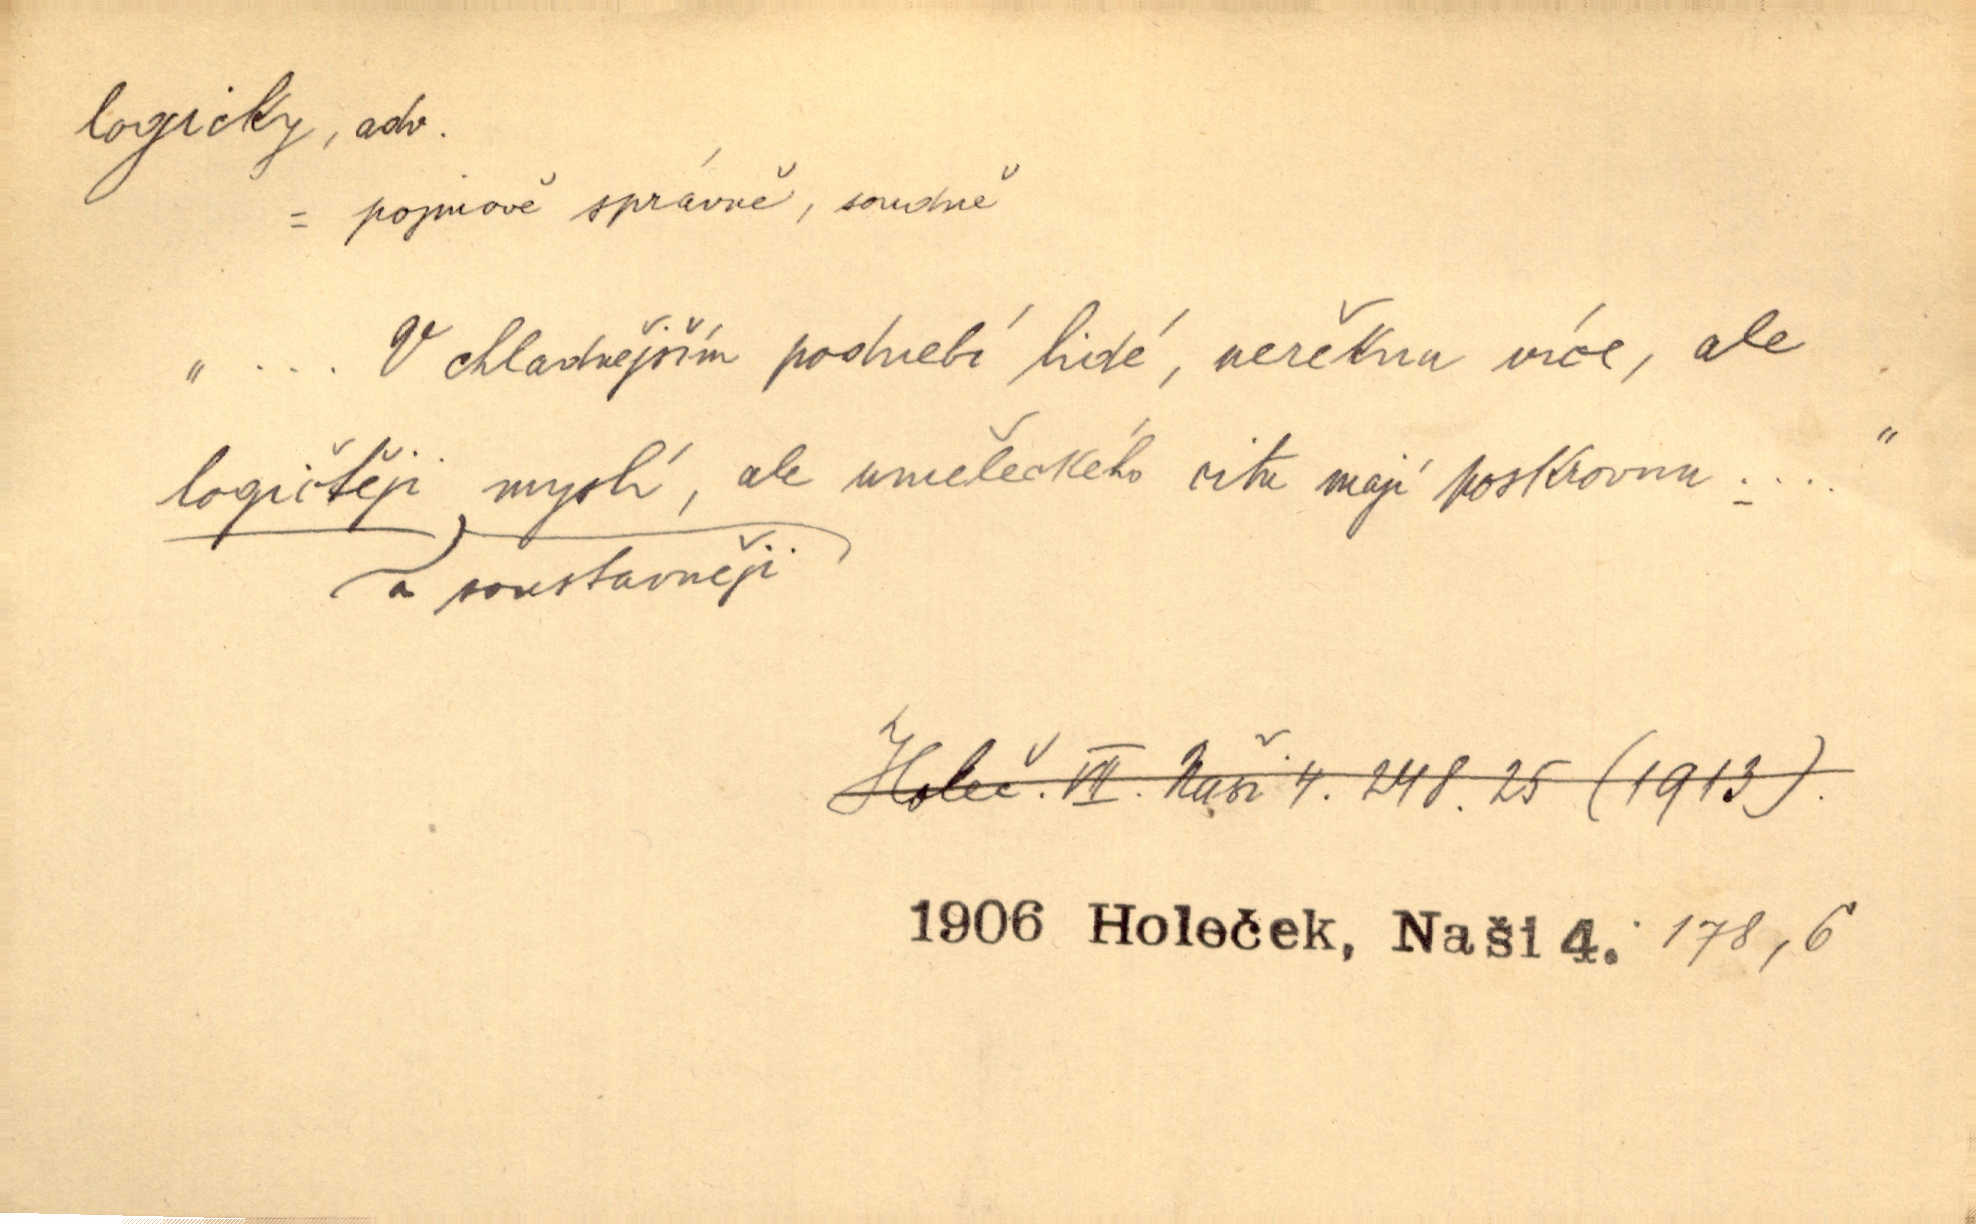 logicky, adv.
= pojmově správně, soudně
„ .... V chladnějším podnebí lidé, neřeknu více, ale
logičtěji myslí, ale uměleckého citu mají poskrovnu ....“
a soustavněji
Holeč. VII. Naši 4. 248. 25 (1913).
1906 Holeček, Naši 4. 178, 6